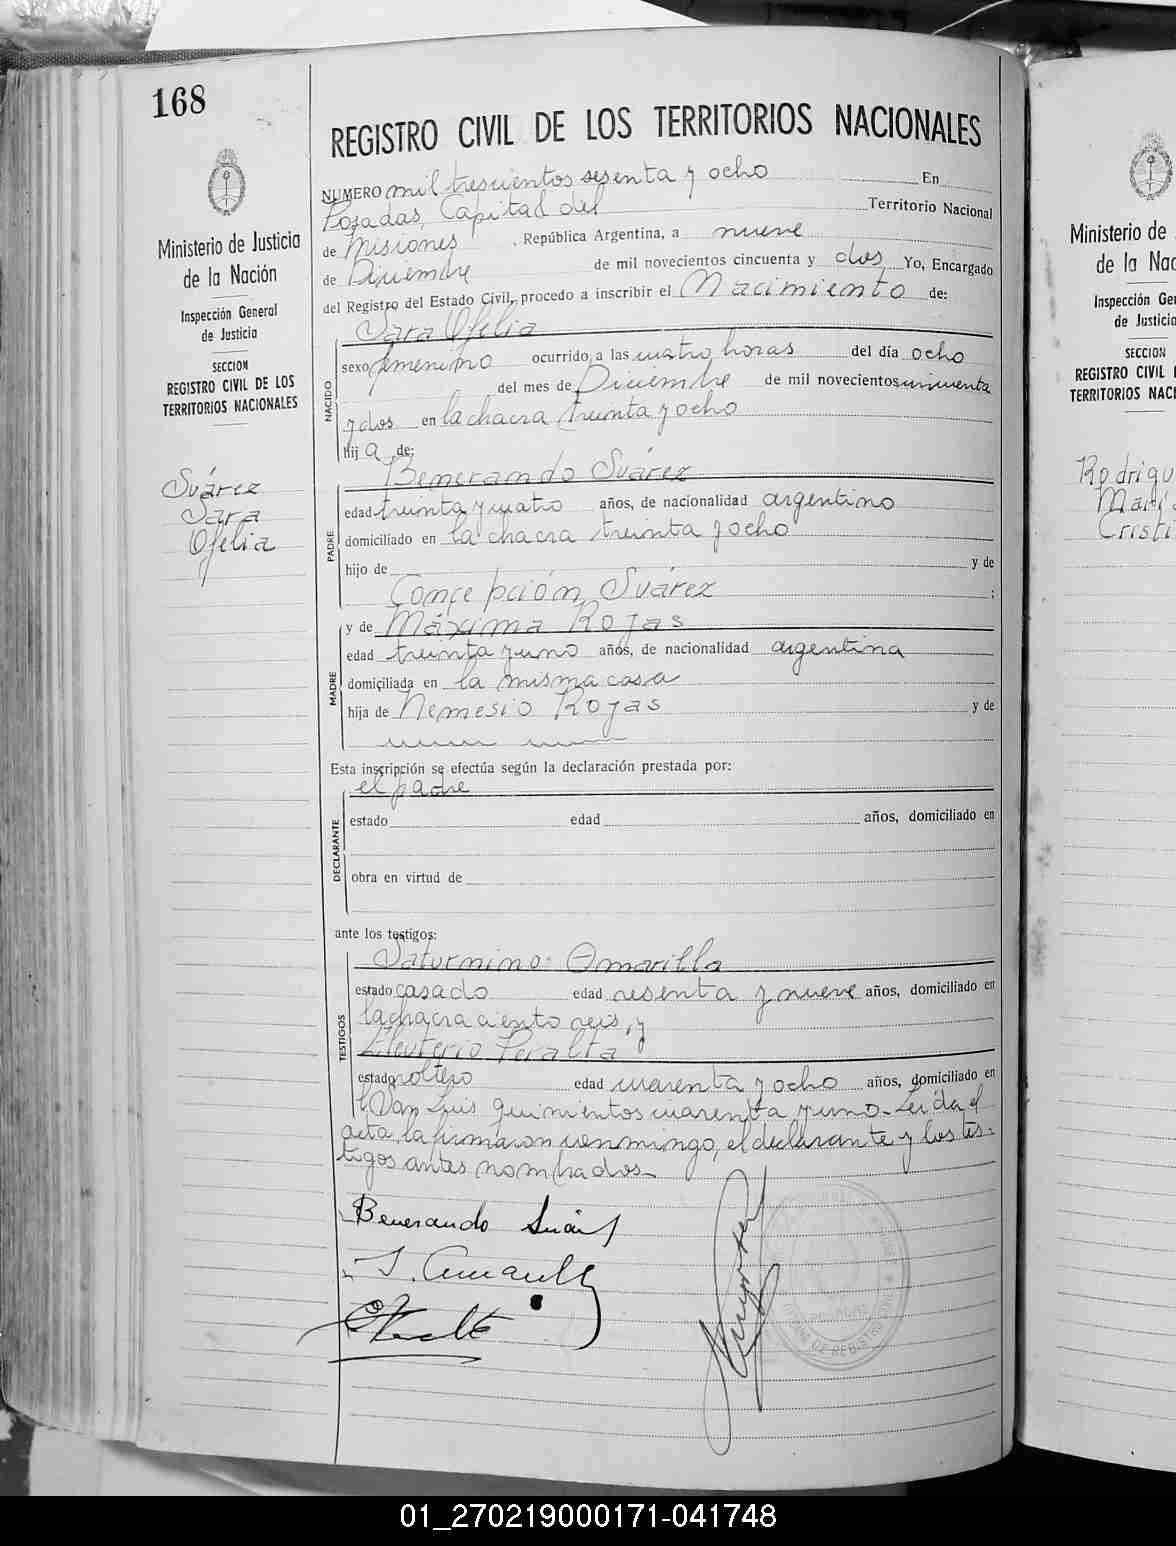 168
REGISTRO CIVIL DE LOS TERRITORIOS NACIONALES
Ministerio de Justicia
de la Nación
Inspección General
de Justicia
SECCION
REGISTRO CIVIL DE LOS
TERRITORIOS NACIONALES
Suárez
Sara
Ofelia
NUMERO mil trescientos sesenta y ocho En
Posadas, Capital del Territorio Nacional
de Misiones, República Argentina, a nueve
de Diciembre de mil novecientos cincuenta y dos Yo, Encargado
del Registro del Estado Civil, procedo a inscribir el Nacimiento de:
Sara Ofelia
NACIDO
sexo femenino ocurrido, a las cuatro horas del día ocho
del mes de Diciembre de mil novecientos cincuenta
y dos en la chacra treinta y ocho
hija de:
Benerando Suárez
PADRE
edad treinta y cuatro años, de nacionalidad argentino
domiciliado en la chacra treinta y ocho
hijo de y de
Concepción Suárez ;
y de Máxima Rojas
MADRE
edad treinta y uno años, de nacionalidad argentina
domiciliada en la misma casa
hija de Nemesio Rojas y de
Esta inscripción se efectúa según la declaración prestada por:
el padre
DECLARANTE
estado edad años, domiciliado en
obra en virtud de
ante los testigos:
Saturnino Amarilla
TESTIGOS
estado casado edad sesenta y nueve años, domiciliado en
la chacra ciento seis, y
Eleuterio Peralta
estado soltero edad cuarenta y ocho años, domiciliado en
San Luis quinientos cuarenta y uno. Leída el
acta, la firmaron conmingo, el declarante y los tes-
tigos antes nombrados
Benerando Suárez
S. Amarilla
Ministerio de
de la Nac
Inspección Ge
de Justicia
SECCION
REGISTRO CIVIL
TERRITORIOS NAC
Rodrígu
Cristi
01_270219000171-041748